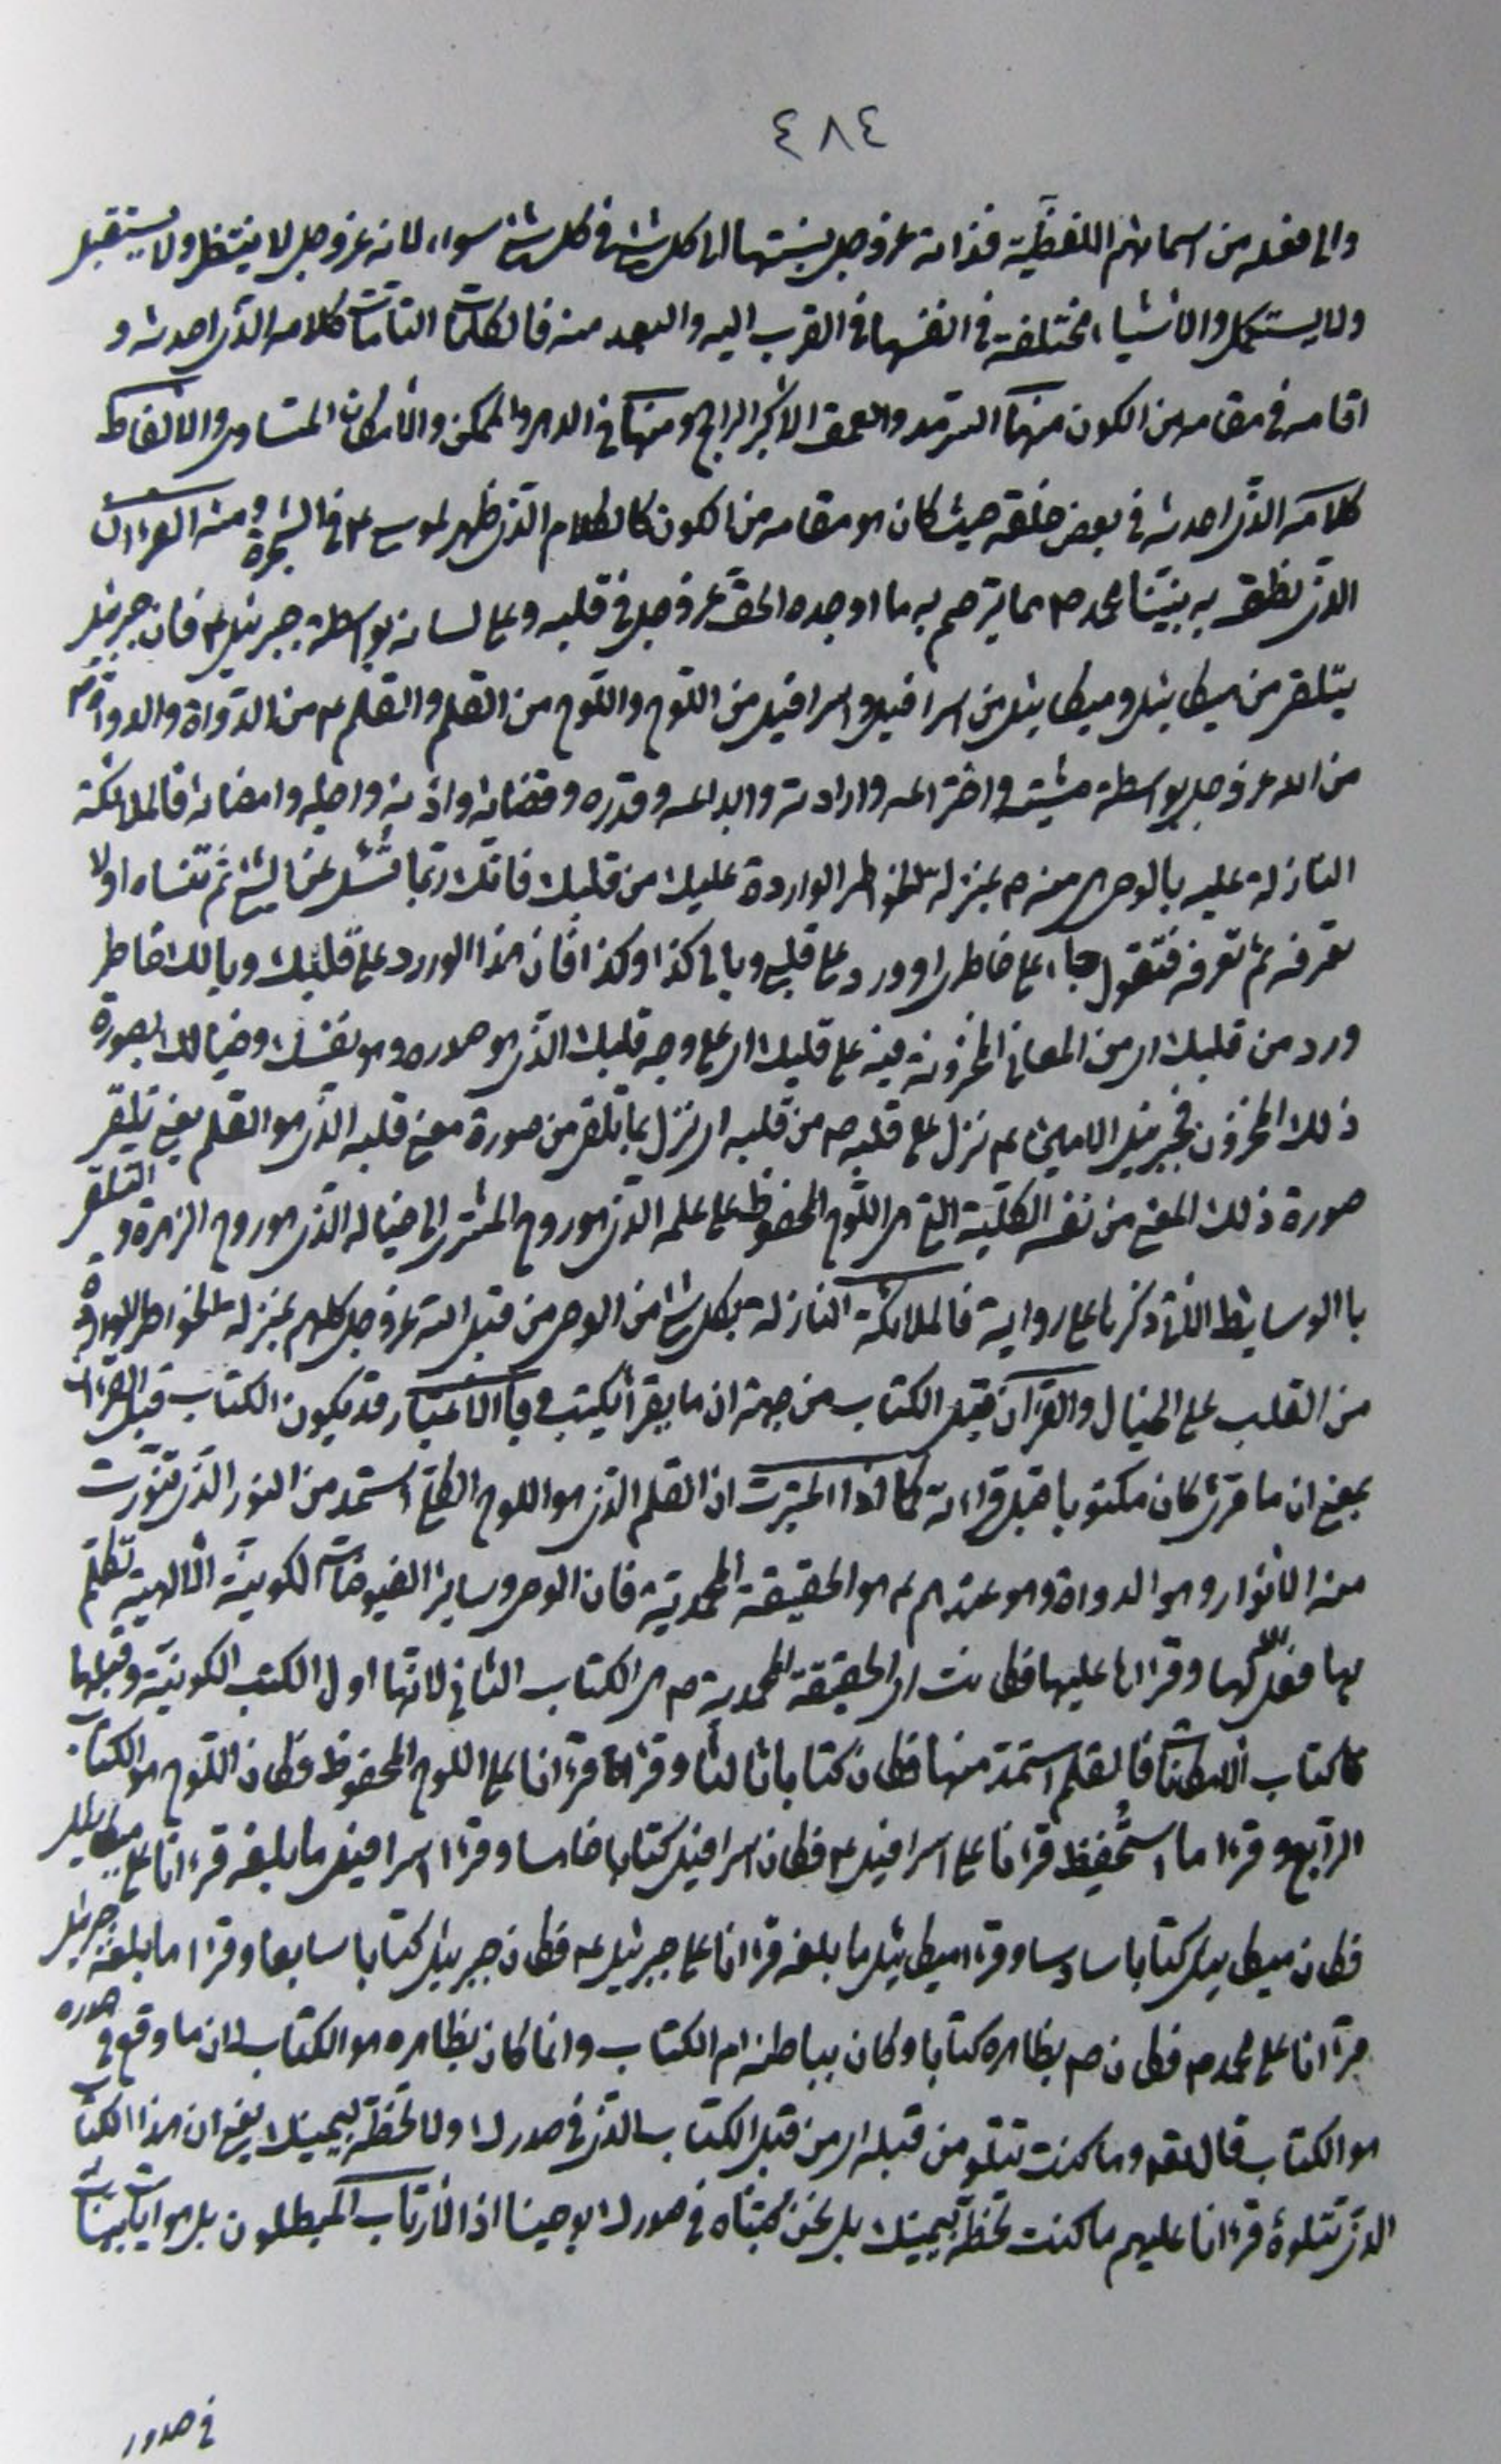 ٤٨٤
والى فعله من اسمائهم اللفظية فذاته عز وجل نسبتها الى كل شئ فى كل شئ سواء لانه عز وجل لا ينتظر ولا يستقبل
ولا يستكمل والاشياء مختلفة فى انفسها فى القرب اليه والبعد منه فالكلمات التامات كلامه الذى احدثه و
اقامه فى مقامه من الكون منها السرمد والعمق الاكبر الراجح ومنها فى الدهر والممكن والامكان المتساوى والالفاظ
كلامه الذى احدثه فى بعض خلقه حيث كان هو مقامه من الكون كالكلام الذى ظهر لموسى ع فى الشجرة ومنه القرءان
الذى نطق به نبينا محمد ص مما يترجم به ما اوجده الحق عز وجل فى قلبه وعلى لسانه بواسطة جبرئيل ع فان جبرئيل
يتلقى من ميكائيل وميكائيل من اسرافيل واسرافيل من اللوح واللوح من القلم والقلم ع من الدواة والدواة ع
من الله عز وجل بواسطة مشيته واختراعه وارادته وابداعه وقدره وقضائه واذنه واجله وامضائه فالملائكة
النازلة عليه بالوحى منه م بمنزلة الخواطر الواردة عليك من قلبك فانك ربما تسئل عن الشئ ثم تنساه اولا
تعرفه ثم تعرفه فتقول جاء على خاطرى وورد على قلبى وبالى كذا وكذا فان هذا الورود على قلبك وبالك خاطر
ورد من قلبك اى من المعانى المخزونة فيه على قلبك اى على وجه قلبك الذى هو صدره وهو نفسك وخيالك بصورة
ذلك المخزون فجبرئيل الامين ع نزل على قلبه ص من قلبه اى نزل بما تلقى من صورة معنى قلبه الذى هو القلم يعنى تلقى
صورة ذلك المعنى من نفسه الكلية التى هى اللوح المحفوظ على علمه الذى هو روح المشترى الى خياله الذى هو روح الزهرة و التلقى
با الوسايط التى ذكرنا على رواية فالملائكة النازلة بكل شئ من الوحى من قبل الله عز وجل كلهم بمنزلة الخواطر الواردة
من القلب على الخيال والقرآن قبل الكتاب من جهة ان ما يقرأ يكتب وبالاعتبار قد يكون الكتاب قبل القرءان
بمعنى ان ما قرئ كان مكتوبا قبل قراءته كما اذا اعتبرت ان القلم الذى هو اللوح الكلى استمد من النور الذى تنورت
منه الانوار وهو الدواة وهو عندهم ع هو الحقيقة المحمدية فان الوحى وساير الفيوضات الكونية الالهية تكلم
بها فعل الله لها وقراها عليها فكانت اى الحقيقة المحمدية ص هى الكتاب الثانى لانها اول الكتب الكونية وقبلها
كتاب الامكان فالقلم استمد منها فكان كتابا ثالثا وقراه قرءانا على اللوح المحفوظ فكان اللوح هو الكتاب
الرابع وقرء ما استحفظ قرءانا على اسرافيل ع فكان اسرافيل كتابا خامسا وقرء اسرافيل ما بلغه قرءانا على ميكائيل
فكان ميكائيل كتابا سادسا وقرء ميكائيل ما بلغه قرءانا على جبرئيل ع فكان جبرئيل كتابا سابعا وقرء ما بلغه جبرئيل
قرءانا على محمد ص فكان ص بظاهره كتابا وكان بباطنه ام الكتاب وانما كان بظاهره هو الكتاب لان ما وقع فى صدره
هو الكتاب قال تعه وما كنت تتلو من قبله اى من قبل الكتاب الذى فى صدرك ولا تخطه بيمينك يعنى ان هذا الكتاب
الذى تتلوه قرءانا عليهم ما كنت تخطه بيمينك بل نحن كتبناه فى صدرك بوحينا اذا لارتاب المبطلون بل هو ايات بينات
فى صدور